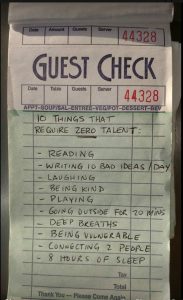 Date Amount Guests Server
44328
GUEST CHECK
Date Table Guests Server
44328
APPT-SOUP/SAL-ENTREE-VEG/POT-DESSERT-BEV
10 THINGS THAT
REQUIRE ZERO TALENT:
- READING
- WRITING 10 BAD IDEAS/DAY
- LAUGHING
- BEING KIND
- PLAYING
- GOING OUTSIDE FOR 20 MINS
DEEP BREATHS
- BEING VULNERABLE
- CONNECTING 2 PEOPLE
- 8 HOURS OF SLEEP
Tax
Total
Thank You — Please Come Again